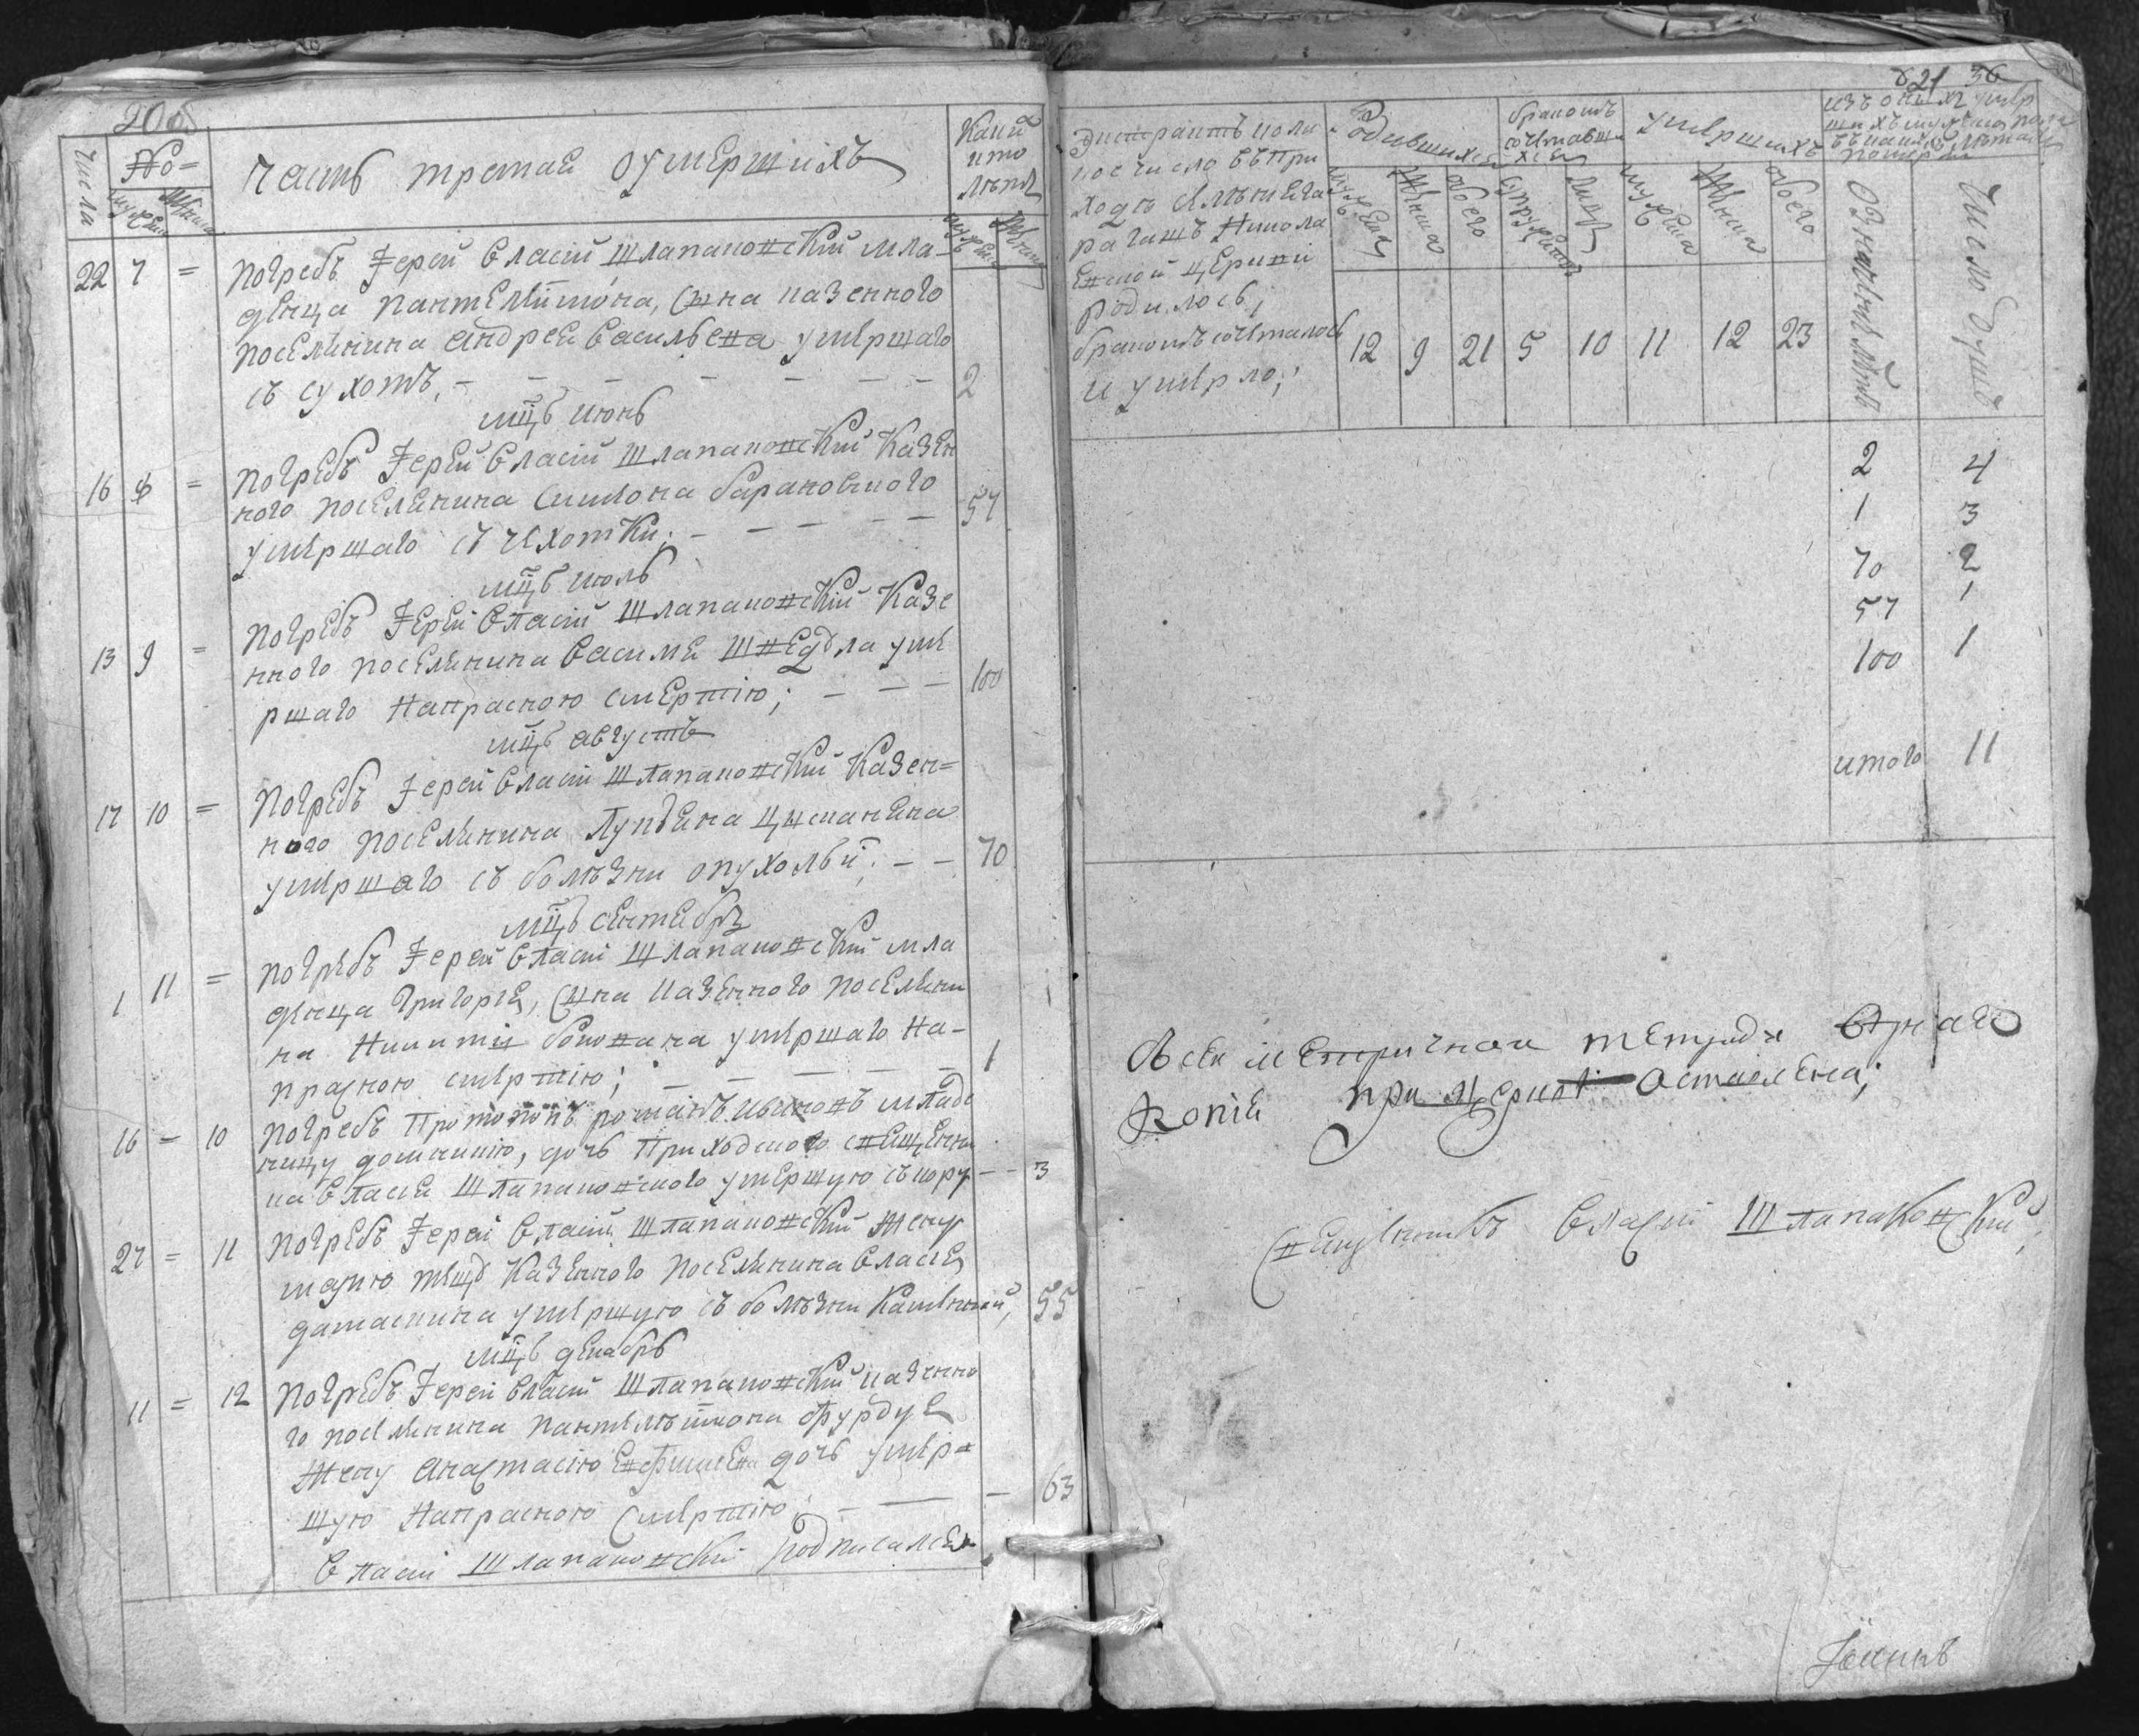 208
Числа
No=
мужеска
женска
часть третая оумершихъ
Каких
ито
летъ
мужеска
женска
22 7 = погребъ Іерей Власій Шлапаковскій мла-
денца Пантелиймона, Сына казенного
поселянина Андрея Васильева умершаго
съ сухотъ, — — — — — — — 2
мцъ июнь
16 8 = погребъ Іерей Власій Шлапаковскій Казен
ного поселянина Симиона Барановского
умершаго съ чехотки; — — — — 57
мцъ июль
13 9 = погребъ Іерей Власій Шлапаковскій Казе
нного поселянина Василія Шведула уме
ршаго Напрасною смертію; — — — 100
мцъ августъ
17 10 = погребъ Іерей Власій Шлапаковскій Казен=
ного поселянина Лупьяна
умершаго съ болѣзни опухольй; — — 70
мцъ сентябрь
1 11 = погребъ Іерей Власій Шлапаковскій мла
денца Григорія, Сына казенного поселяни
на Никити умершаго На-
прасною смертію; — — — — — 1
16 = 10 погребъ Протопопъ Романъ Ивановъ младе
ницу Домникію, дочь Приходского священни
ка Власія Шлапаковского умершую съ кору — — 3
27 = 11 погребъ Іерей Власій Шлапаковскій Жену
Казенного поселянина Власія
умершую съ болѣзни Каменной; 55
мцъ декабрь
11 = 12 погребъ Іерей Власій Шлапаковскій казенно
го поселянина Пантелѣймона Фурдуя
Жену Анастасію дочь умер=
шую Напрасною Смертію; — — — 63
Власій Шлапаковскій Подписался
821 36
Экстрактъ коли
кое число въ при
ходѣ
Никола
евской церкви
родилось;
бракомъ сочеталось
и умерло;
Родившихся
мужеска
женска
обоего
бракомъ
сочетавши
хся
супружествъ
лицъ
умершихъ
мужеска
женска
обоего
изъ оныхъ умер
шихъ мужеска пола
въ какихъ лѣтахъ
померли
Означеніе лѣтъ
Число душъ
12 9 21 5 10 11 12 23
2 4
1 3
70 2
57 1
100 1
итого 11
Всея метричная тетради
Копія при церкве оставлена;
Священникъ Власій Шлапаковскій;